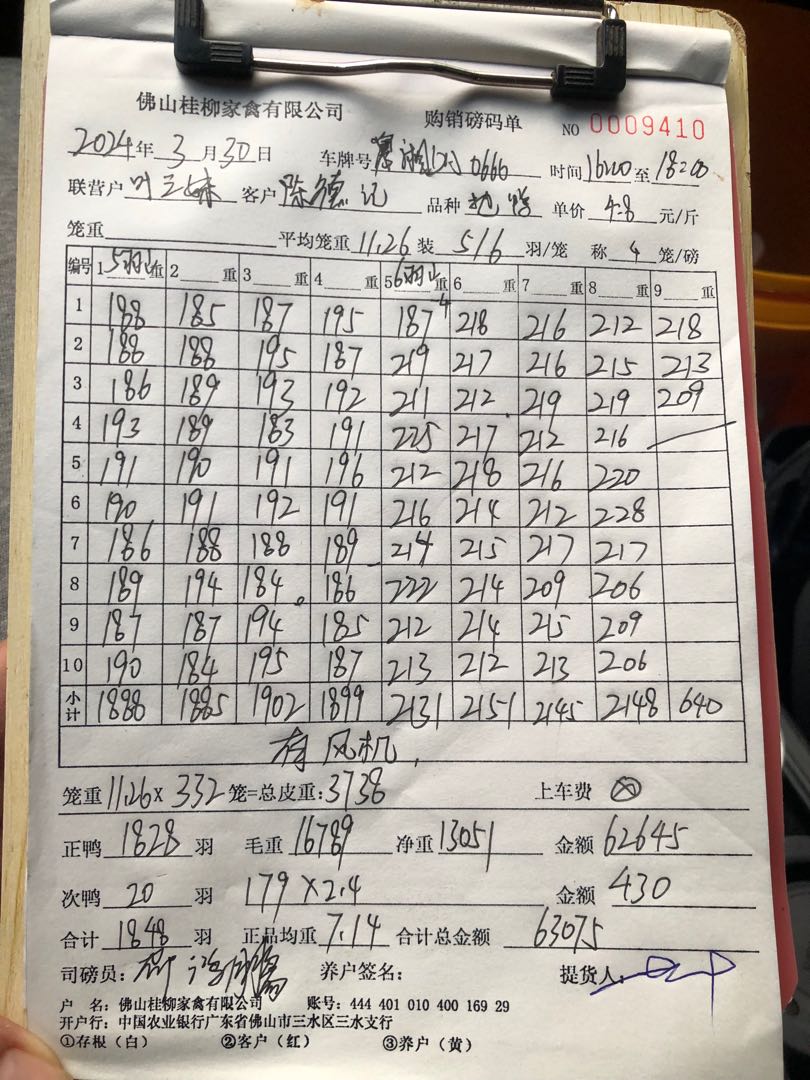 佛山桂柳家禽有限公司 购销磅码单 NO 0009410
2024年 3月30日 车牌号 0666 时间16:20至18:20
联营户 叶三妹 客户 陈德记 品种 单价 4.8 元/斤
笼重 平均笼重 11.26 装 5/6 羽/笼 称 4 笼/磅
编号 1 5羽 重 2 重 3 重 4 重 5 6羽 重 6 重 7 重 8 重 9 重
1 188 185 187 195 187 4 218 216 212 218
2 188 188 195 187 219 217 216 215 213
3 186 189 193 192 211 212 219 219 209
4 193 189 183 191 225 217 212 216
5 191 190 191 196 212 218 216 220
6 190 191 192 191 216 214 212 228
7 186 188 188 189 214 215 217 217
8 189 194 184 186 222 214 209 206
9 187 187 194 185 212 214 215 209
10 190 184 195 187 213 212 213 206
小计 1888 1885 1902 1899 2131 2151 2145 2148 640
有风机
笼重 11.26 × 332 笼=总皮重:3738 上车费
正鸭 1828 羽 毛重 16789 净重 13051 金额 62645
次鸭 20 羽 179×2.4 金额 430
合计 1848 羽 正品均重 7.14 合计总金额 63075
司磅员: 养户签名: 提货人:
户 名:佛山桂柳家禽有限公司 账号:444 401 010 400 169 29
开户行:中国农业银行广东省佛山市三水区三水支行
①存根(白) ②客户(红) ③养户(黄)